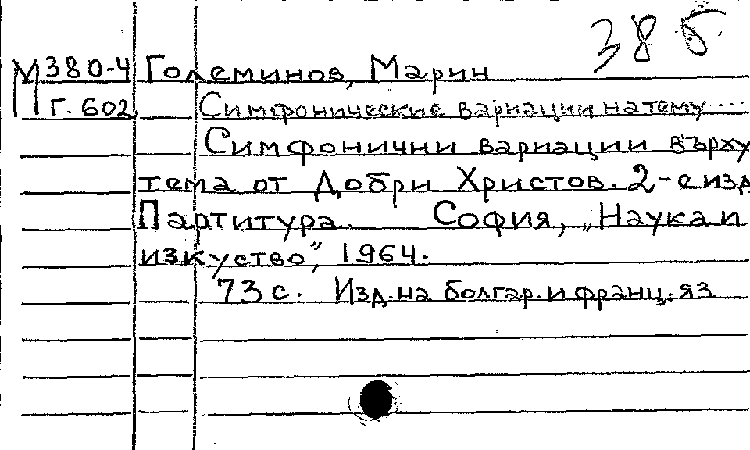 38 б
М 380-4 Големинов, Марин
П Г. 602 Симфонические вариации на тему...
Симфонични вариации върху
тема от Добри Христов. 2-е изд
Партитура. София, „Наука и
изкуство", 1964.
73 с. Изд. на болгар. и франц. яз